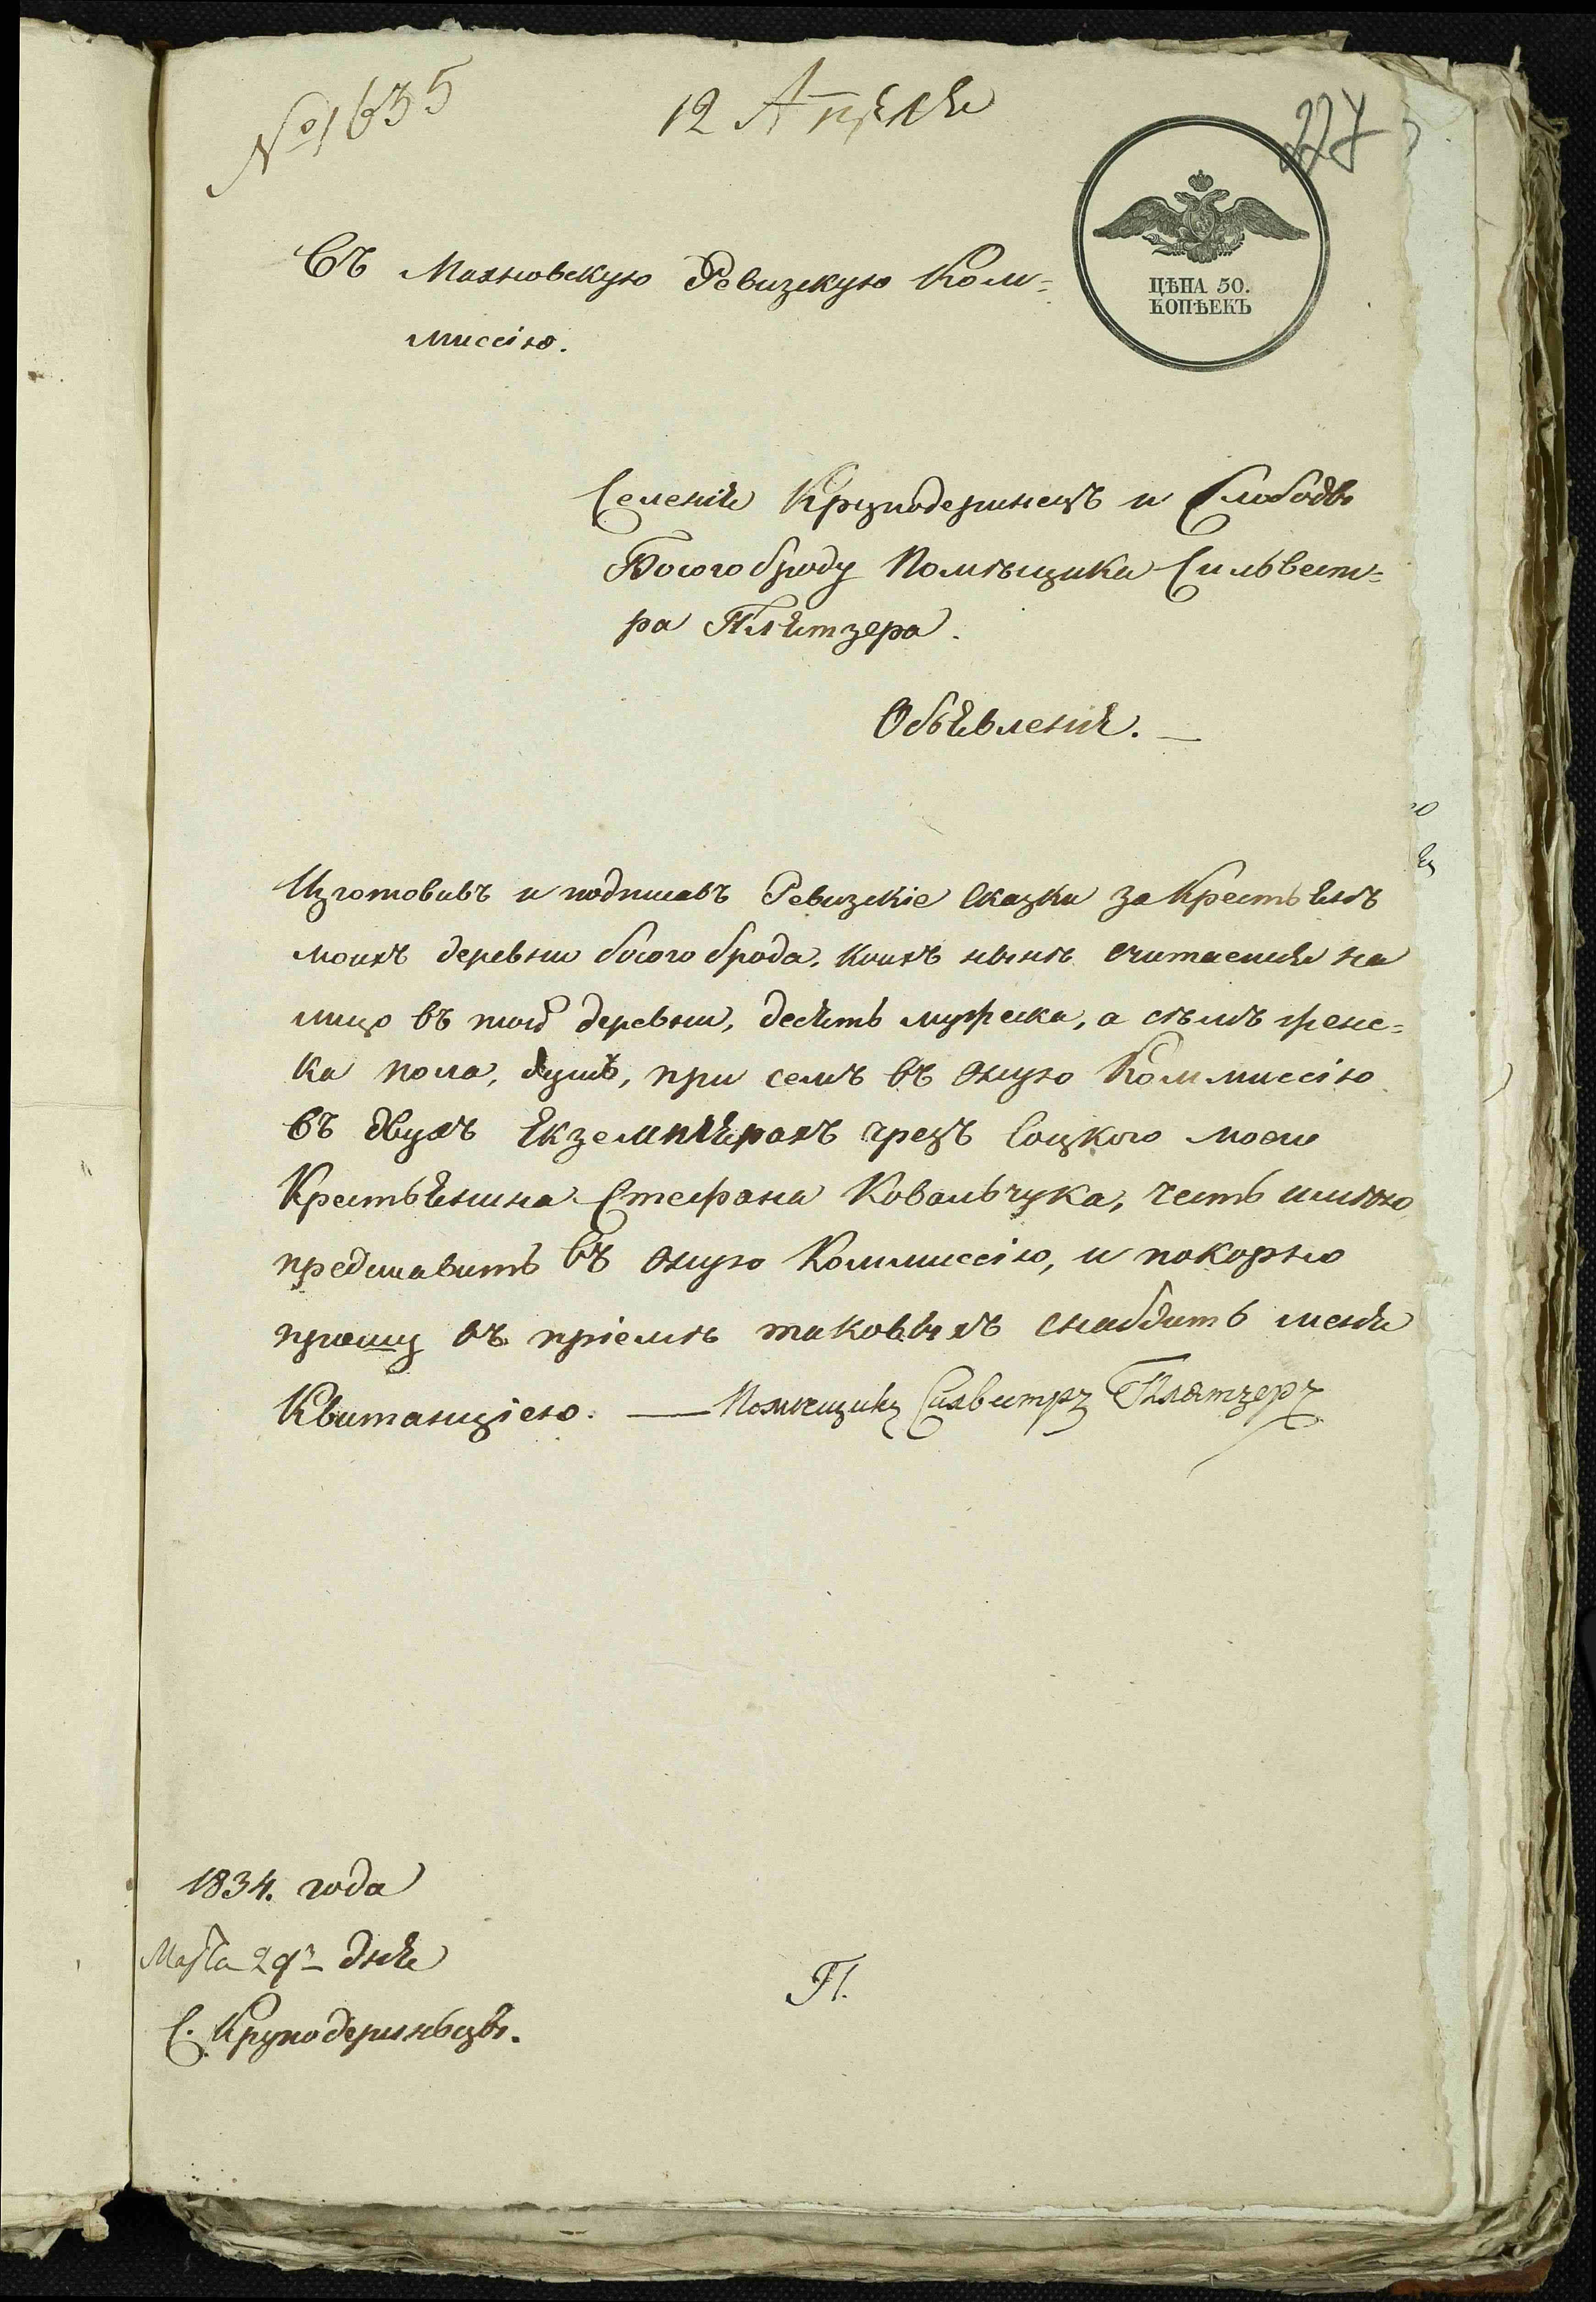 № 1635
12 Апреля
227
ЦѢНА 50.
КОПѢЕКЪ
Въ Махновскую Ревизскую Ком=
миссію.
Селенія Круподеринецъ и Слободы
Босогоброду Помѣщика Сильвест=
ра Плятзера.
Объявленіе. —
Изготовивъ и подписавъ Ревизскіе Сказки за Крестьянъ
моихъ деревни босого брода, коихъ нынѣ считается на
лицо въ той деревни, десять мужеска, а семъ женс=
ка пола, душъ, при семъ въ оную Коммиссію
въ двухъ Екземплярахъ чрезъ Соцкого моего
Крестьянина Стефана Ковальчука, честь имѣю
представить въ оную Коммиссію, и покорно
прошу въ пріемѣ таковыхъ снабдить меня
Квитанціею. — Помещикъ Силвестръ Плятзеръ
1834. года
Марта 29го дня
С. Круподериньцы.
П.